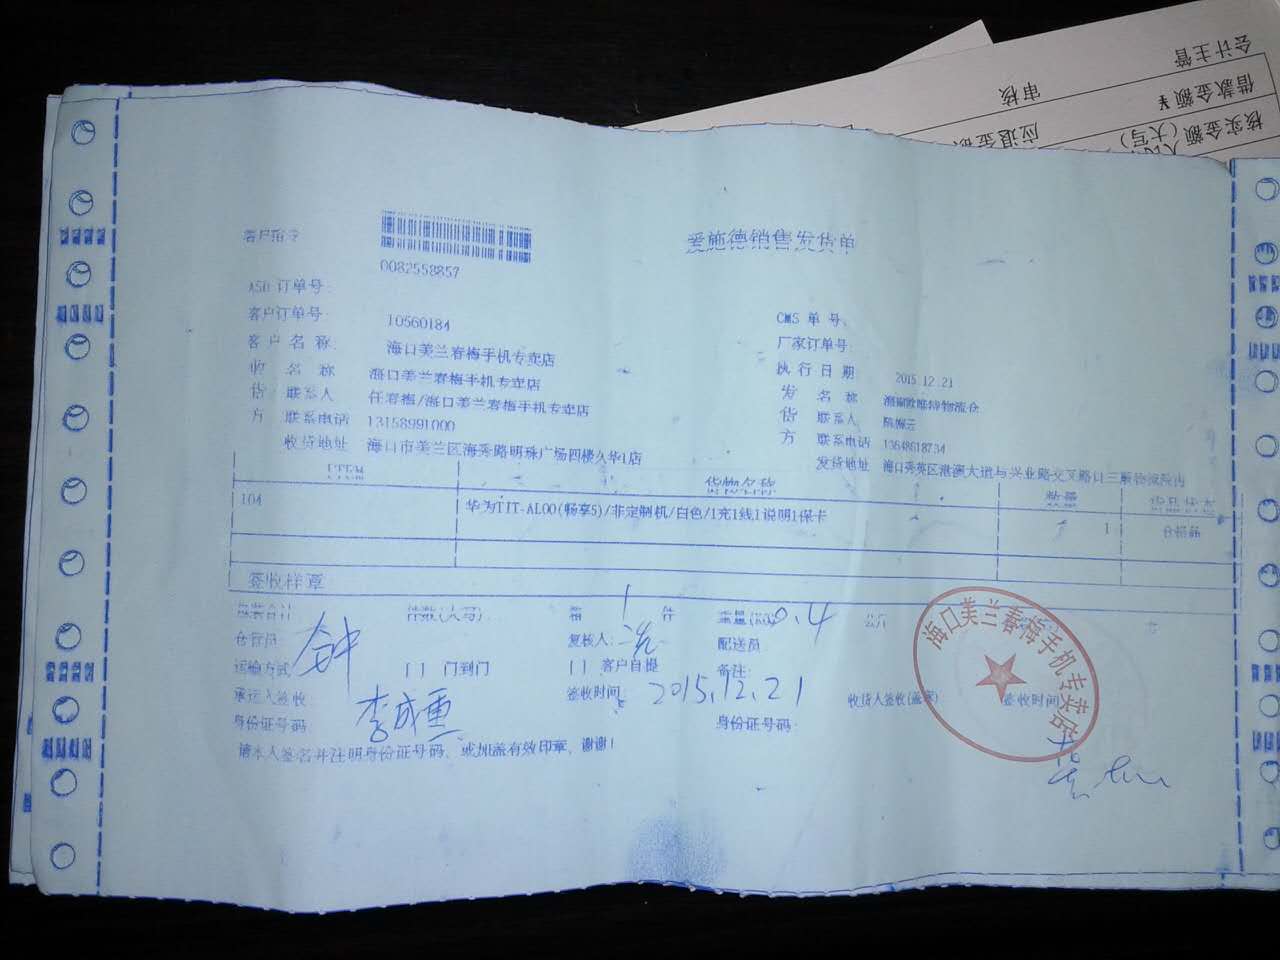 会计主管
审核
借款金额
应退金额
核实金额(大写)
客户指令
爱施德销售发货单
0082558857
ASD 订单号:
客户订单号: 10560184
CMS 单 号:
客 户 名 称: 海口美兰春梅手机专卖店
厂家订单号:
收 名 称 海口美兰春梅手机专卖店
执 行 日 期 2015.12.21
货 联系人 任春梅/海口美兰春梅手机专卖店
发 名 称
方 联系电话 13158991000
货 联系人
收货地址 海口市美兰区海秀路明珠广场四楼久华1店
方 联系电话 13648618734
发货地址 海口秀英区港澳大道与兴业路交叉路口三顺物流院内
ITEM 货物名称 数量 货品状态
104 华为TIT-AL00(畅享5)/非定制机/白色/1充1线1说明1保卡 1 合格品
签收样章
包装合计 件数(大写): 箱 1 件 重量(kg) 0.4 公斤
仓管员: 复核人: 配送员
运输方式 [ ] 门到门 [ ] 客户自提 备注:
承运人签收 签收时间: 2015.12.21 收货人签收(盖章) 签收时间
身份证号码 身份证号码:
请本人签名并注明身份证号码、或加盖有效印章，谢谢!
海口美兰春梅手机专卖店